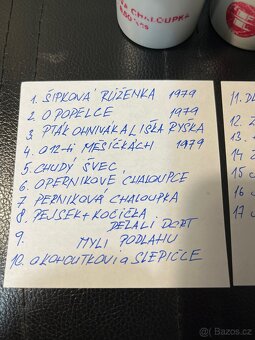 CHALOUPKA
1. ŠÍPKOVÁ RŮŽENKA 1979
2. O POPELCE 1979
3 PTÁK OHNIVÁK A LIŠKA RYŠKA
4. O 12-ti MĚSÍČKÁCH 1979
5. CHUDÝ ŠVEC
6. O PERNIKOVÉ CHALOUPCE
7 PERNIKOVÁ CHALOUPKA
8. PEJSEK + KOČIČKA
DĚLALI DORT
9. MYLI PODLAHU
10. O KOHOUTKOVI a SLEPIČCE
11. D
12. Z
13.
14 Z
15
16
17
sbazar.cz